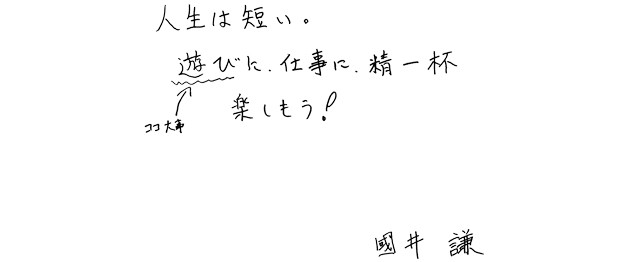 人生は短い。
遊びに、仕事に、精一杯
ココ大事
楽しもう!
國井 謙